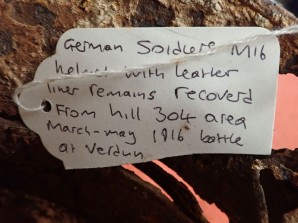 German Soldiers M16
helmet with leather
liner remains recoverd
From hill 304 area
March-may 1916 battle
at Verdun